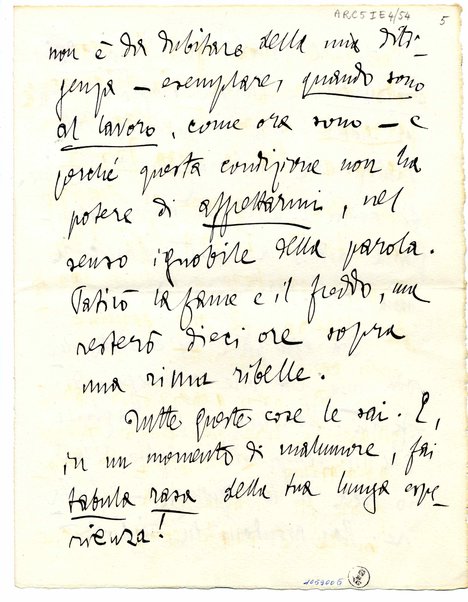 ARC5IE4/54
5
non è da dubitare della mia dili-
genza — esemplare, quando sono
al lavoro, come ora sono — e
perché questa condizione non ha
potere di affrettarmi, nel
senso ignobile della parola.
Patirò la fame e il freddo, ma
resterò dieci ore sopra
una rima ribelle.
Tutte queste cose le sai. E,
in un momento di malumore, fai
tabula rasa della tua lunga espe-
rienza!